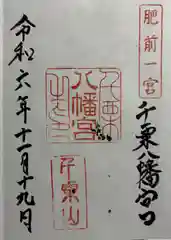 肥前一宮
千栗八幡宮
八幡宮
千栗山
令和六年十一月十九日